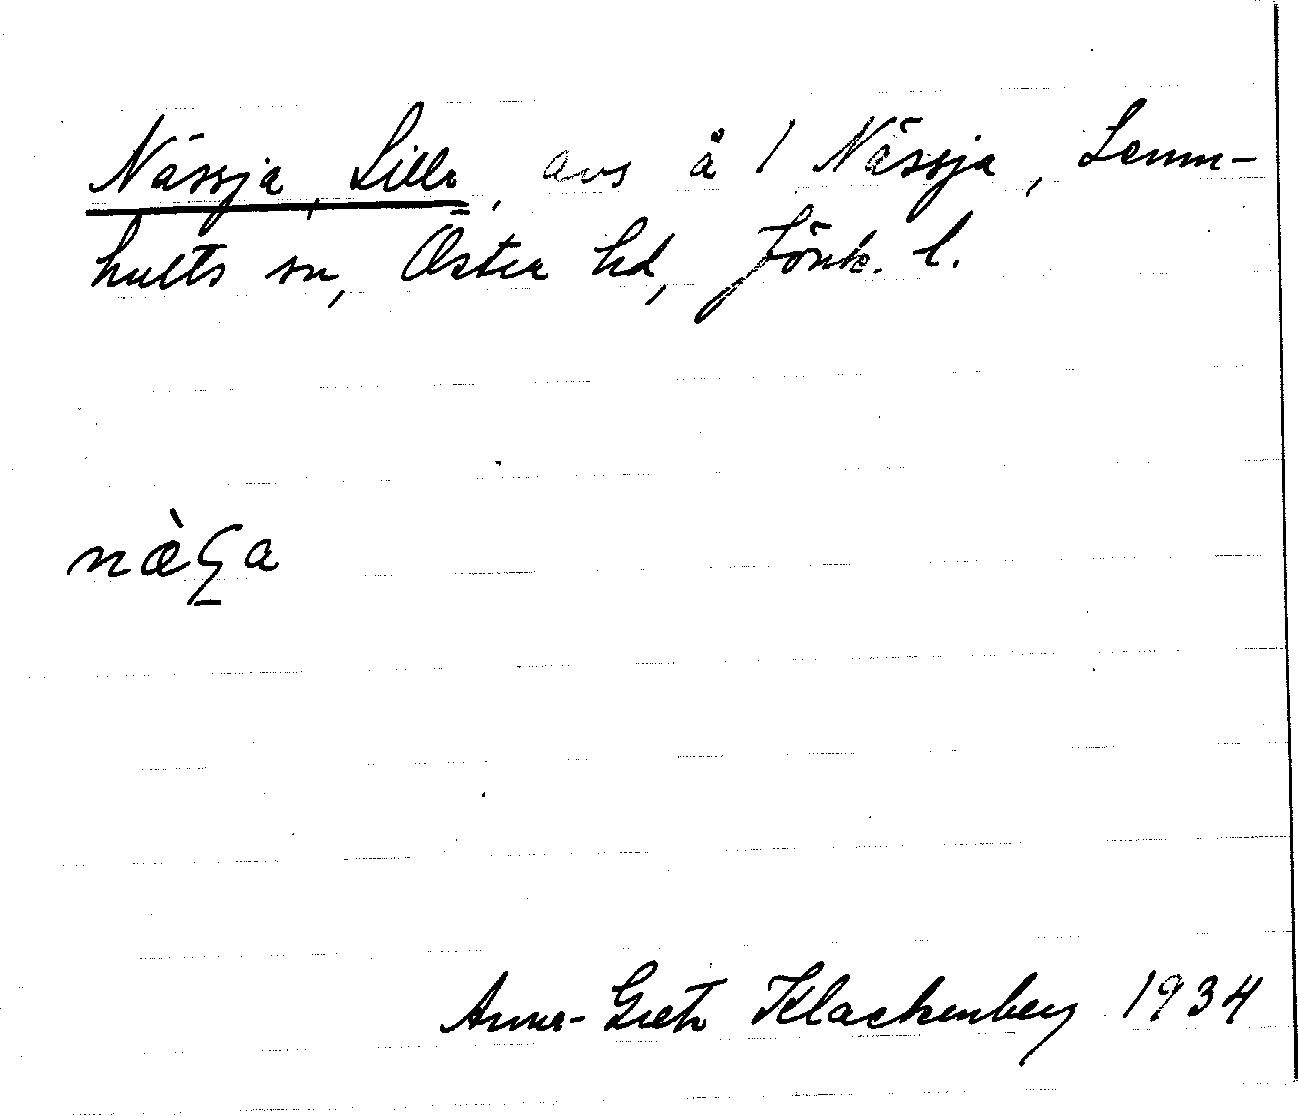 Nässja, Lilla, avs å 1 Nässja, Lemn-
hults sn, Östra hd, Jönk. l.
Anna-Greta Klackenberg 1934